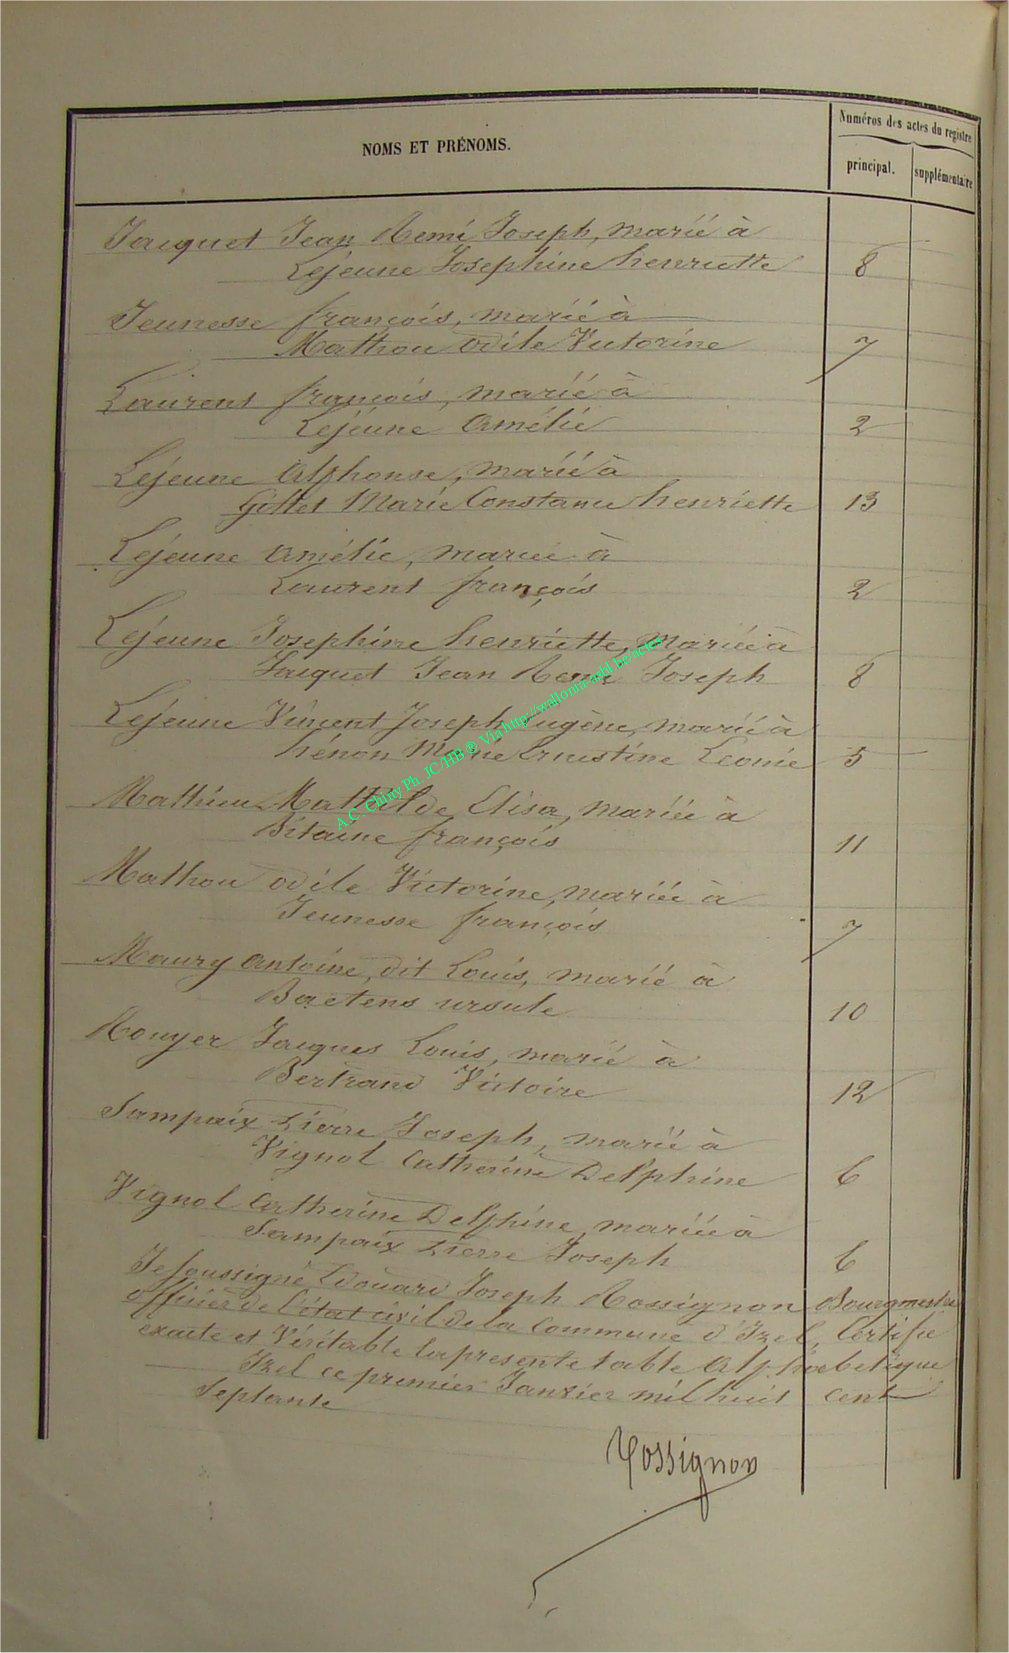 NOMS ET PRÉNOMS.
Numéros des actes du registre
principal.
supplémentaire
Jacquet Jean Remi Joseph, marié à
Lejeune Josephine henriette 8
Jeunesse françois, marié à
Mathou odile Victorine 7
Laurent françois, marié à
Lejeune Amélie 2
Lejeune Alphonse, marié à
Gillet Marie Constance henriette 13
Lejeune Amélie, mariée à
Laurent françois 2
Lejeune Josephine henriette, Mariée à
Jacquet Jean Remi Joseph 8
Lejeune Vincent Joseph Eugène, marié à
hénon Marie Ernestine Leonie 5
Mathieu Mathilde Elisa, mariée à
Pitaine françois 11
Mathou odile Victorine, mariée à
Jeunesse françois 7
Maury Antoine, dit Louis, marié à
Baetens ursule 10
Rouyer Jacques Louis, marié à
Bertrand Victoire 12
Sampaix Pierre Joseph, marié à
Vignol Catherine Delphine 6
Vignol Catherine Delphine, mariée à
Sampaix Pierre Joseph 6
Je soussigné Edouard Joseph Rossignon Bourgmestre
officier de l'état civil de la Commune d'Izel, Certifie
exacte et Véritable la presente table Alphabetique
Izel ce premier Janvier mil huit cent
Septante
Rossignon
A.C. Chiny Ph. JC/HB ® Via http://wallonia-asbl.be/actes